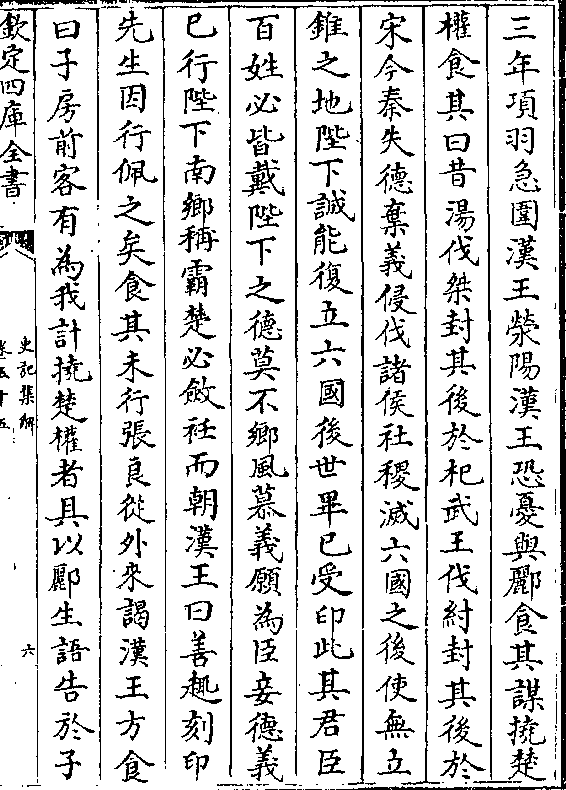 三年項羽急圍漢王滎陽漢王恐憂與酈食其謀撓楚
權食其曰昔湯伐桀封其後於杞武王伐紂封其後於
宋今秦失德棄義侵伐諸侯社稷滅六國之後使無立
錐之地陛下誠能復立六國後世畢已受印此其君臣
百姓必皆戴陛下之德莫不鄉風慕義願為臣妾德義
已行陛下南鄉稱霸楚必斂衽而朝漢王曰善趣刻印
先生因行佩之矣食其未行張良從外來謁漢王方食
曰子房前客有為我計撓楚權者具以酈生語告於子
欽定四庫全書
史記集解
卷五十五
六